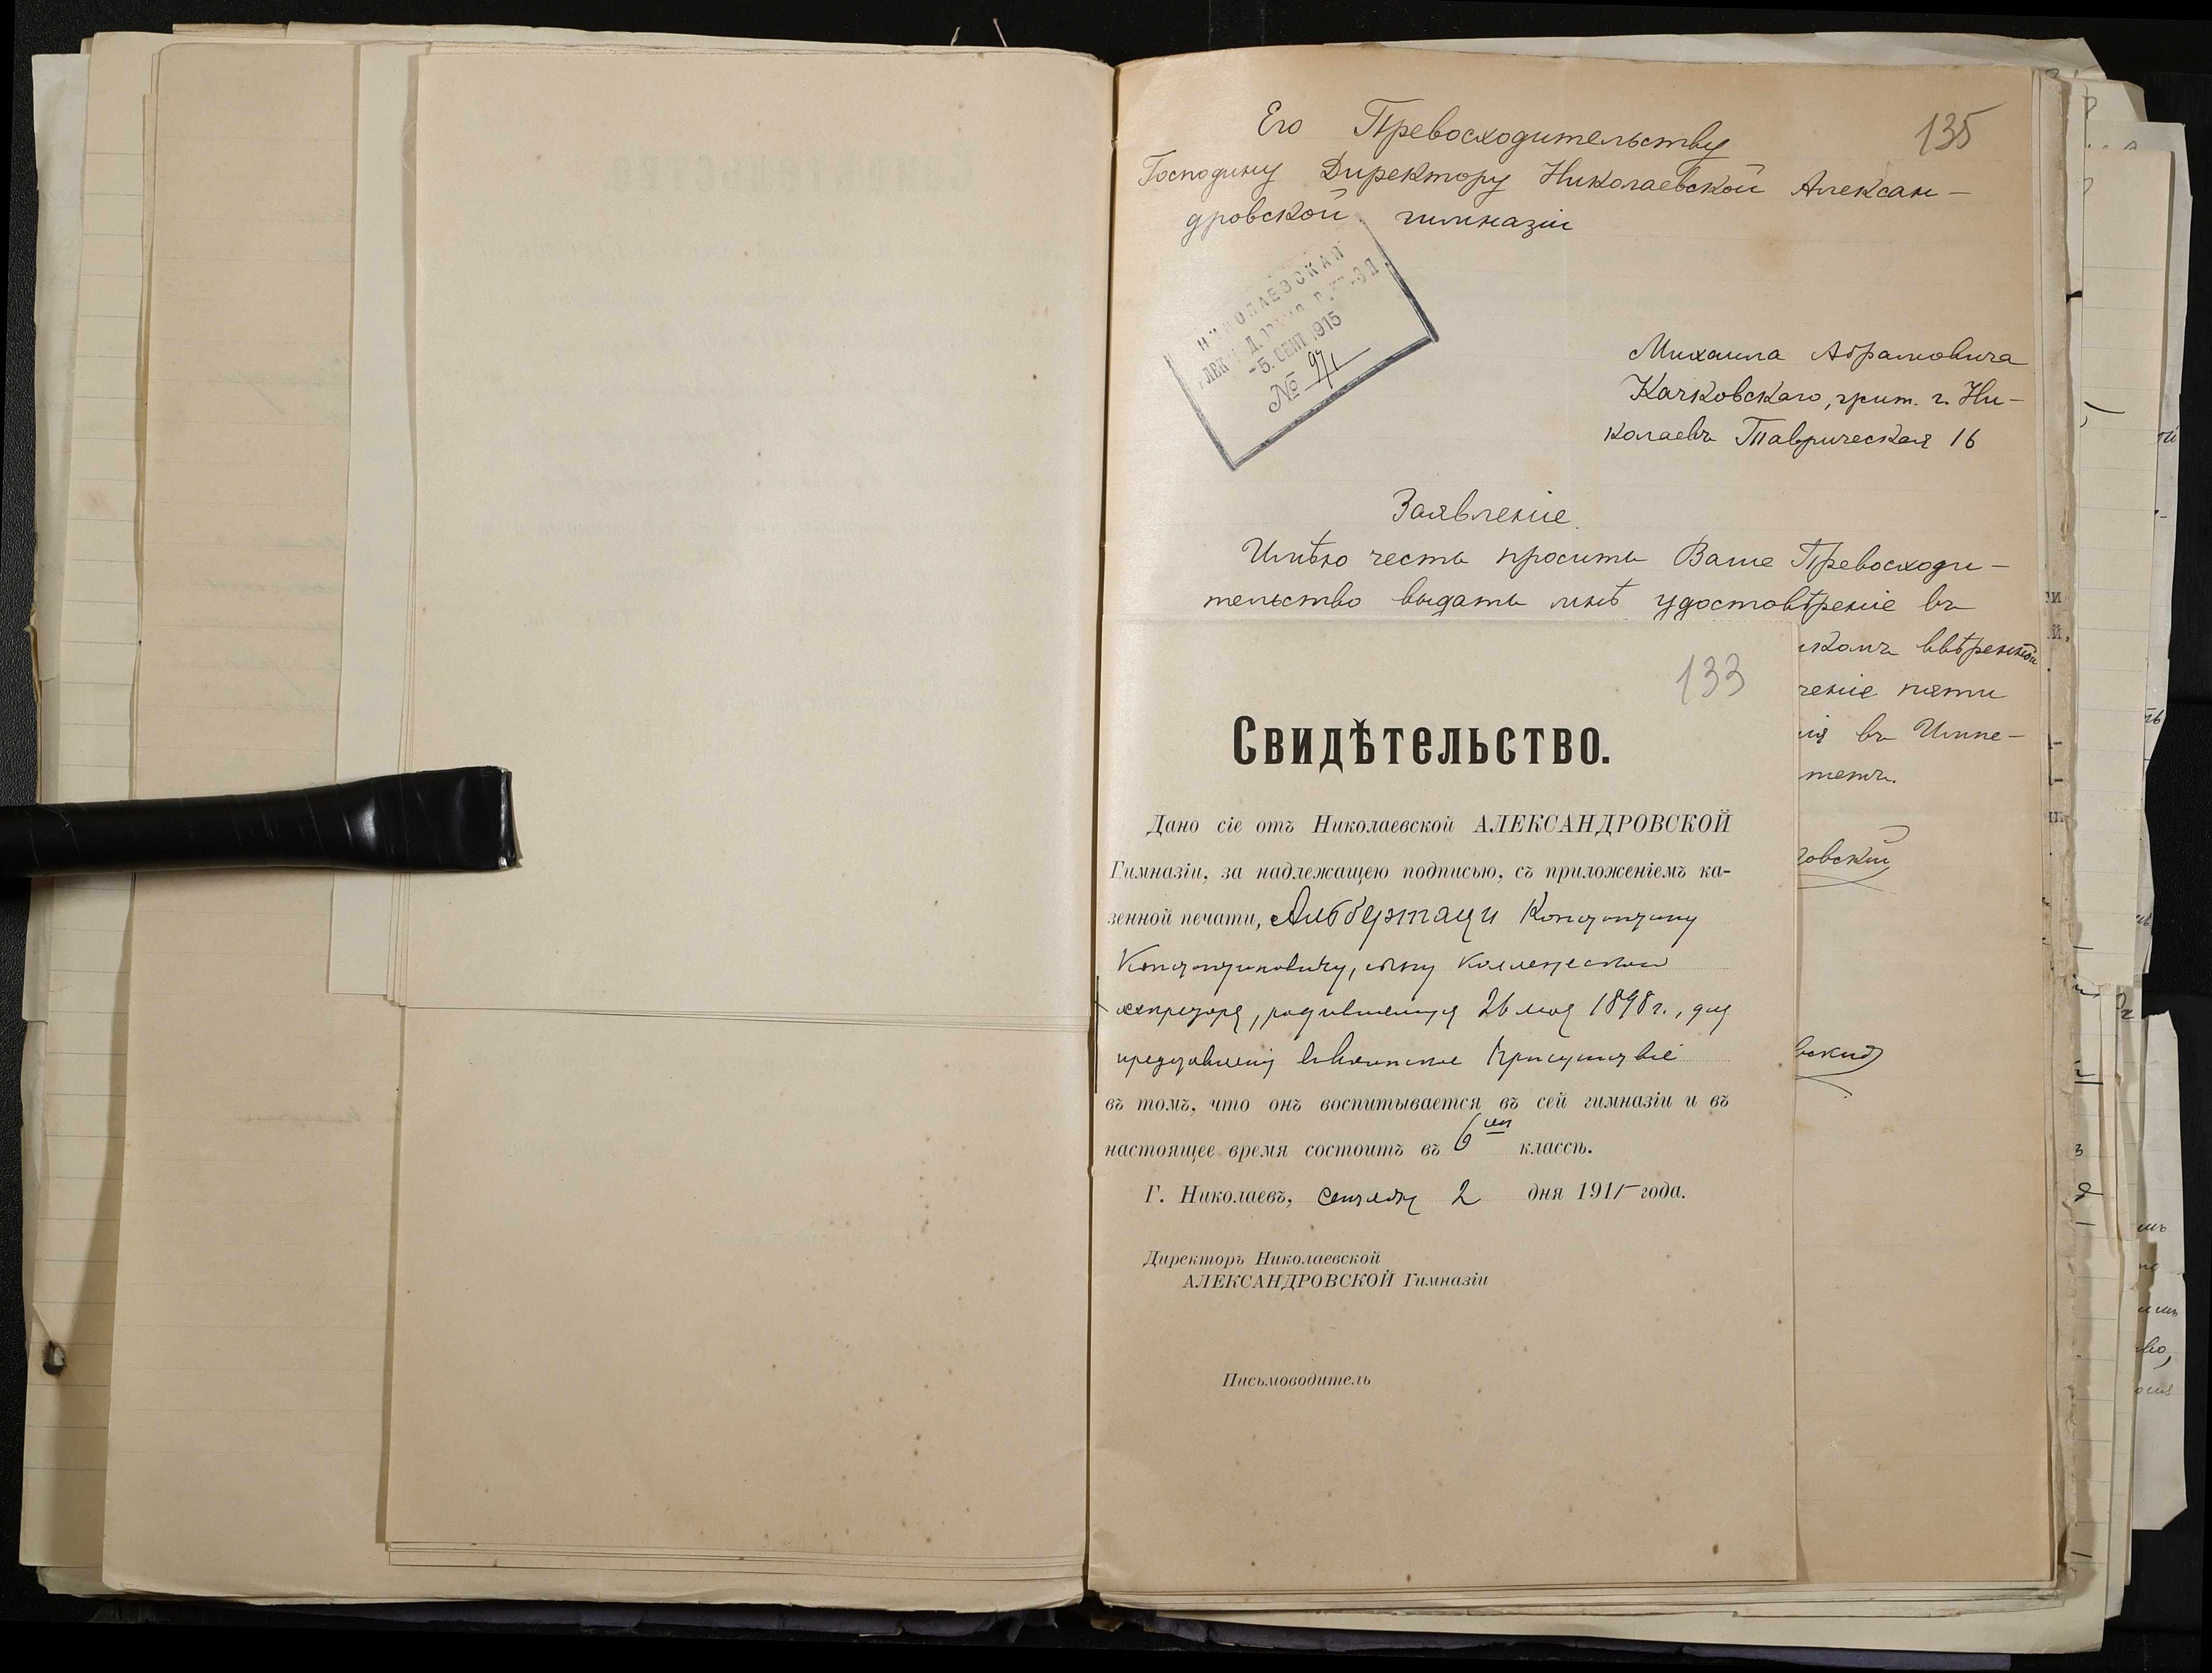 135
Его Превосходительству
Господину Директору Николаевской Алексан-
дровской гимназіи
НИКОЛАЕВСКАЯ
-5. СЕНТ. 1915
№ 971
Михаила Абрамовича
Качковскаго, жит. г. Ни-
колаевъ Таврическая 16
Заявленіе.
Имѣю честь просить Ваше Превосходи-
тельство выдать мнѣ удостовѣреніе въ
ввѣренной
пяти
въ Импе-
133
Свидѣтельство.
Дано сіе отъ Николаевской АЛЕКСАНДРОВСКОЙ
Гимназіи, за надлежащею подписью, съ приложеніемъ ка-
зенной печати, Альбертаци Константину
Константиновичу, сыну коллежскаго
ассесора, родившемуся 26 мая 1898 г., для
представленія въ воинское присутствіе
въ томъ, что онъ воспитывается въ сей гимназіи и въ
настоящее время состоитъ въ 6 классѣ.
Г. Николаевъ, сентября 2 дня 1915 года.
Директоръ Николаевской
АЛЕКСАНДРОВСКОЙ Гимназіи
Письмоводитель